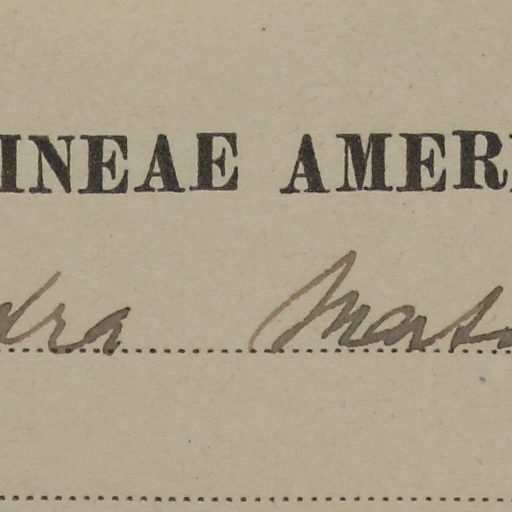 INEAE AMER
dra Mars